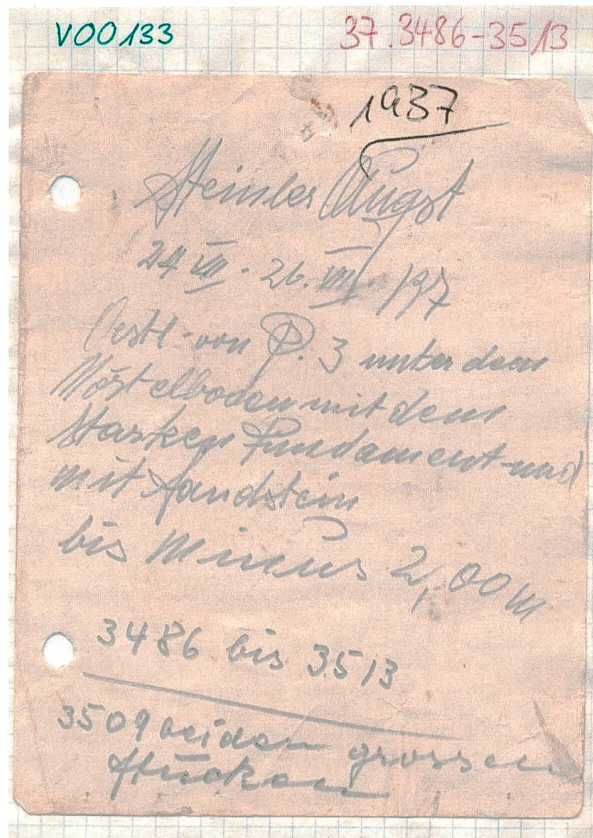 V00133 37.3486-3513
1937
Steinler Augst
24 VIII. - 26. VIII. 1937
Oestl. von P. 3 unter dem
Mörtelboden mit dem
starken Fundament und
mit Sandstein
bis Minus 2,00 m
3486 bis 3513
3509 bei den grossen
Stücken